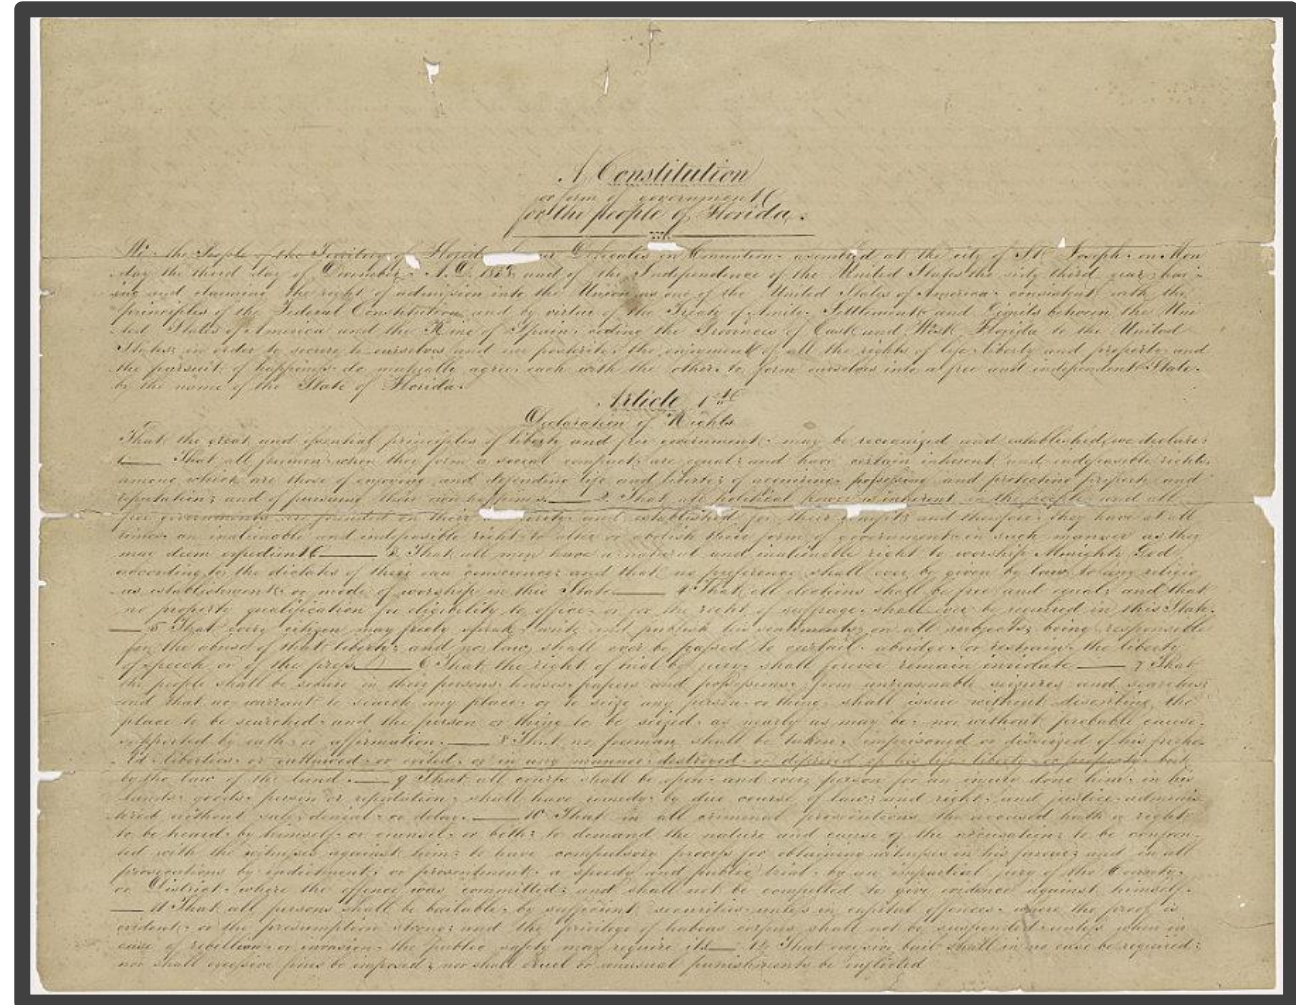 A Constitution
or form of government
for the people of Florida.
We, the People of the Territory of Florida by our Delegates in Convention, assembled at the city of St. Joseph on Mon
day the third day of December, A.D. 1838, and of the Independence of the United States the sixty third year, hav
ing and claiming the right of admission into the Union as one of the United States of America, consistent with the
principles of the Federal Constitution, and by virtue of the Treaty of Amity, Settlement and Limits between the Uni
ted States of America and the King of Spain, ceding the Provinces of East and West Florida to the United
States; in order to secure to ourselves and our posterity the enjoyment of all the rights of life, liberty and property, and
the pursuit of happiness, do mutually agree, each with the other, to form ourselves into a free and independent State,
by the name of the State of Florida.
Article 1st
Declaration of Rights
That the great and essential principles of liberty and free government, may be recognized and established, we declare:
1 That all freemen when they form a social compact, are equal; and have certain inherent and indefeasible rights,
among which are those of enjoying and defending life and liberty; of acquiring, possessing and protecting property and
reputation; and of pursuing their own happiness. 2 That all political power is inherent in the people and all
free governments are founded on their authority and established for their and therefore, they have at all
times an inalienable and indefeasible right to alter or abolish their form of government, in such manner as they
may deem expedient. 3 That all men have a natural and inalienable right to worship Almighty God
according to the dictates of their own conscience; and that no preference shall ever be given by law, to any religio
us establishment, or mode of worship in this State. 4 That all elections shall be free and equal; and that
no property qualification for eligibility to office, or for the right of suffrage, shall ever be required in this State.
5 That every citizen may freely speak, write and publish his sentiments, on all subjects; being responsible
for the abuse of that liberty; and no law shall ever be passed to curtail, abridge, or restrain the liberty
of speech or of the press. 6 That the right of trial by jury, shall forever remain inviolate. 7 That
the people shall be secure in their persons, houses, papers and possessions, from unreasonable seizures and searches;
and that no warrant to search any place, or to seize any person or thing, shall issue without describing the
place to be searched, and the person or thing to be seized, as nearly as may be; nor without probable cause,
supported by oath or affirmation. 8 That no freeman shall be taken, imprisoned or disseized of his freeho
ld, liberties, or outlawed, or exiled, or in any manner destroyed or deprived of his life, liberty or property, but
by the law of the land. 9 That all courts shall be open, and every person for an injury done him, in his
lands, goods, person or reputation, shall have remedy by due course of law; and right and justice adminis
tered without sale, denial, or delay. 10 That in all criminal prosecutions the accused hath a right
to be heard, by himself, or counsel, or both; to demand the nature and cause of the accusation; to be confron
ted with the witnesses against him; to have compulsory process for obtaining witnesses in his favour; and in all
prosecutions by indictment, or presentment, a speedy and public trial, by an impartial jury of the County
or District, where the offence was committed; and shall not be compelled to give evidence against himself.
11 That all persons shall be bailable, by sufficient securities, unless in capital offences, where the proof is
evident, or the presumption strong; and the privilege of habeas corpus shall not be suspended unless when in
case of rebellion, or invasion, the public safety may require it. 12 That excessive bail shall in no case be required;
nor shall excessive fines be imposed; nor shall cruel or unusual punishments be inflicted